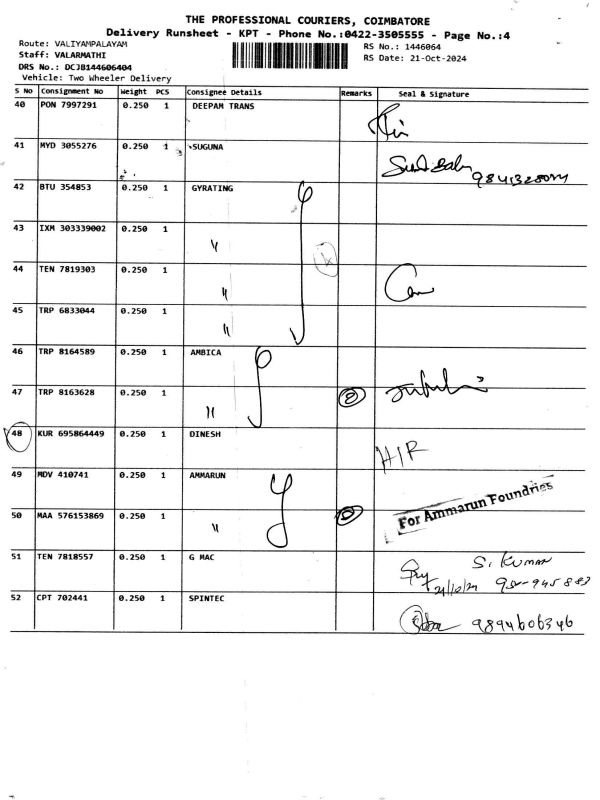 THE PROFESSIONAL COURIERS, COIMBATORE
Delivery Runsheet - KPT - Phone No.:0422-3505555 - Page No.:4
Route: VALIYAMPALAYAM
RS No.: 1446064
Staff: VALARMATHI
RS Date: 21-Oct-2024
DRS No.: DCJB144606404
Vehicle: Two Wheeler Delivery
S No Consignment No Weight PCS Consignee Details Remarks Seal & Signature
40 PON 7997291 0.250 1 DEEPAM TRANS
41 MYD 3055276 0.250 1 SUGUNA
42 BTU 354853 0.250 1 GYRATING
43 IXM 303339002 0.250 1 "
44 TEN 7819303 0.250 1 "
45 TRP 6833044 0.250 1 "
46 TRP 8164589 0.250 1 AMBICA
47 TRP 8163628 0.250 1 " 2
48 KUR 695864449 0.250 1 DINESH
H/R
49 MDV 410741 0.250 1 AMMARUN
50 MAA 576153869 0.250 1 " 2
For Ammarun Foundries
51 TEN 7818557 0.250 1 G MAC
S. KUMAR
21/10/24
52 CPT 702441 0.250 1 SPINTEC
9894606346